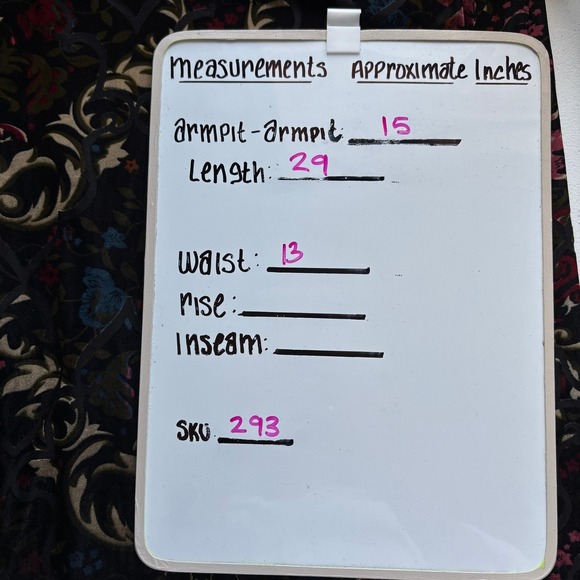 measurements Approximate Inches
armpit-armpit 15
Length: 29
waist: 13
rise:
Inseam:
SKU. 293